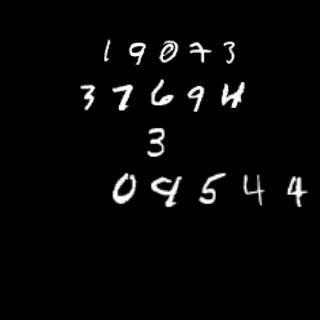 19073
37694
3
09544